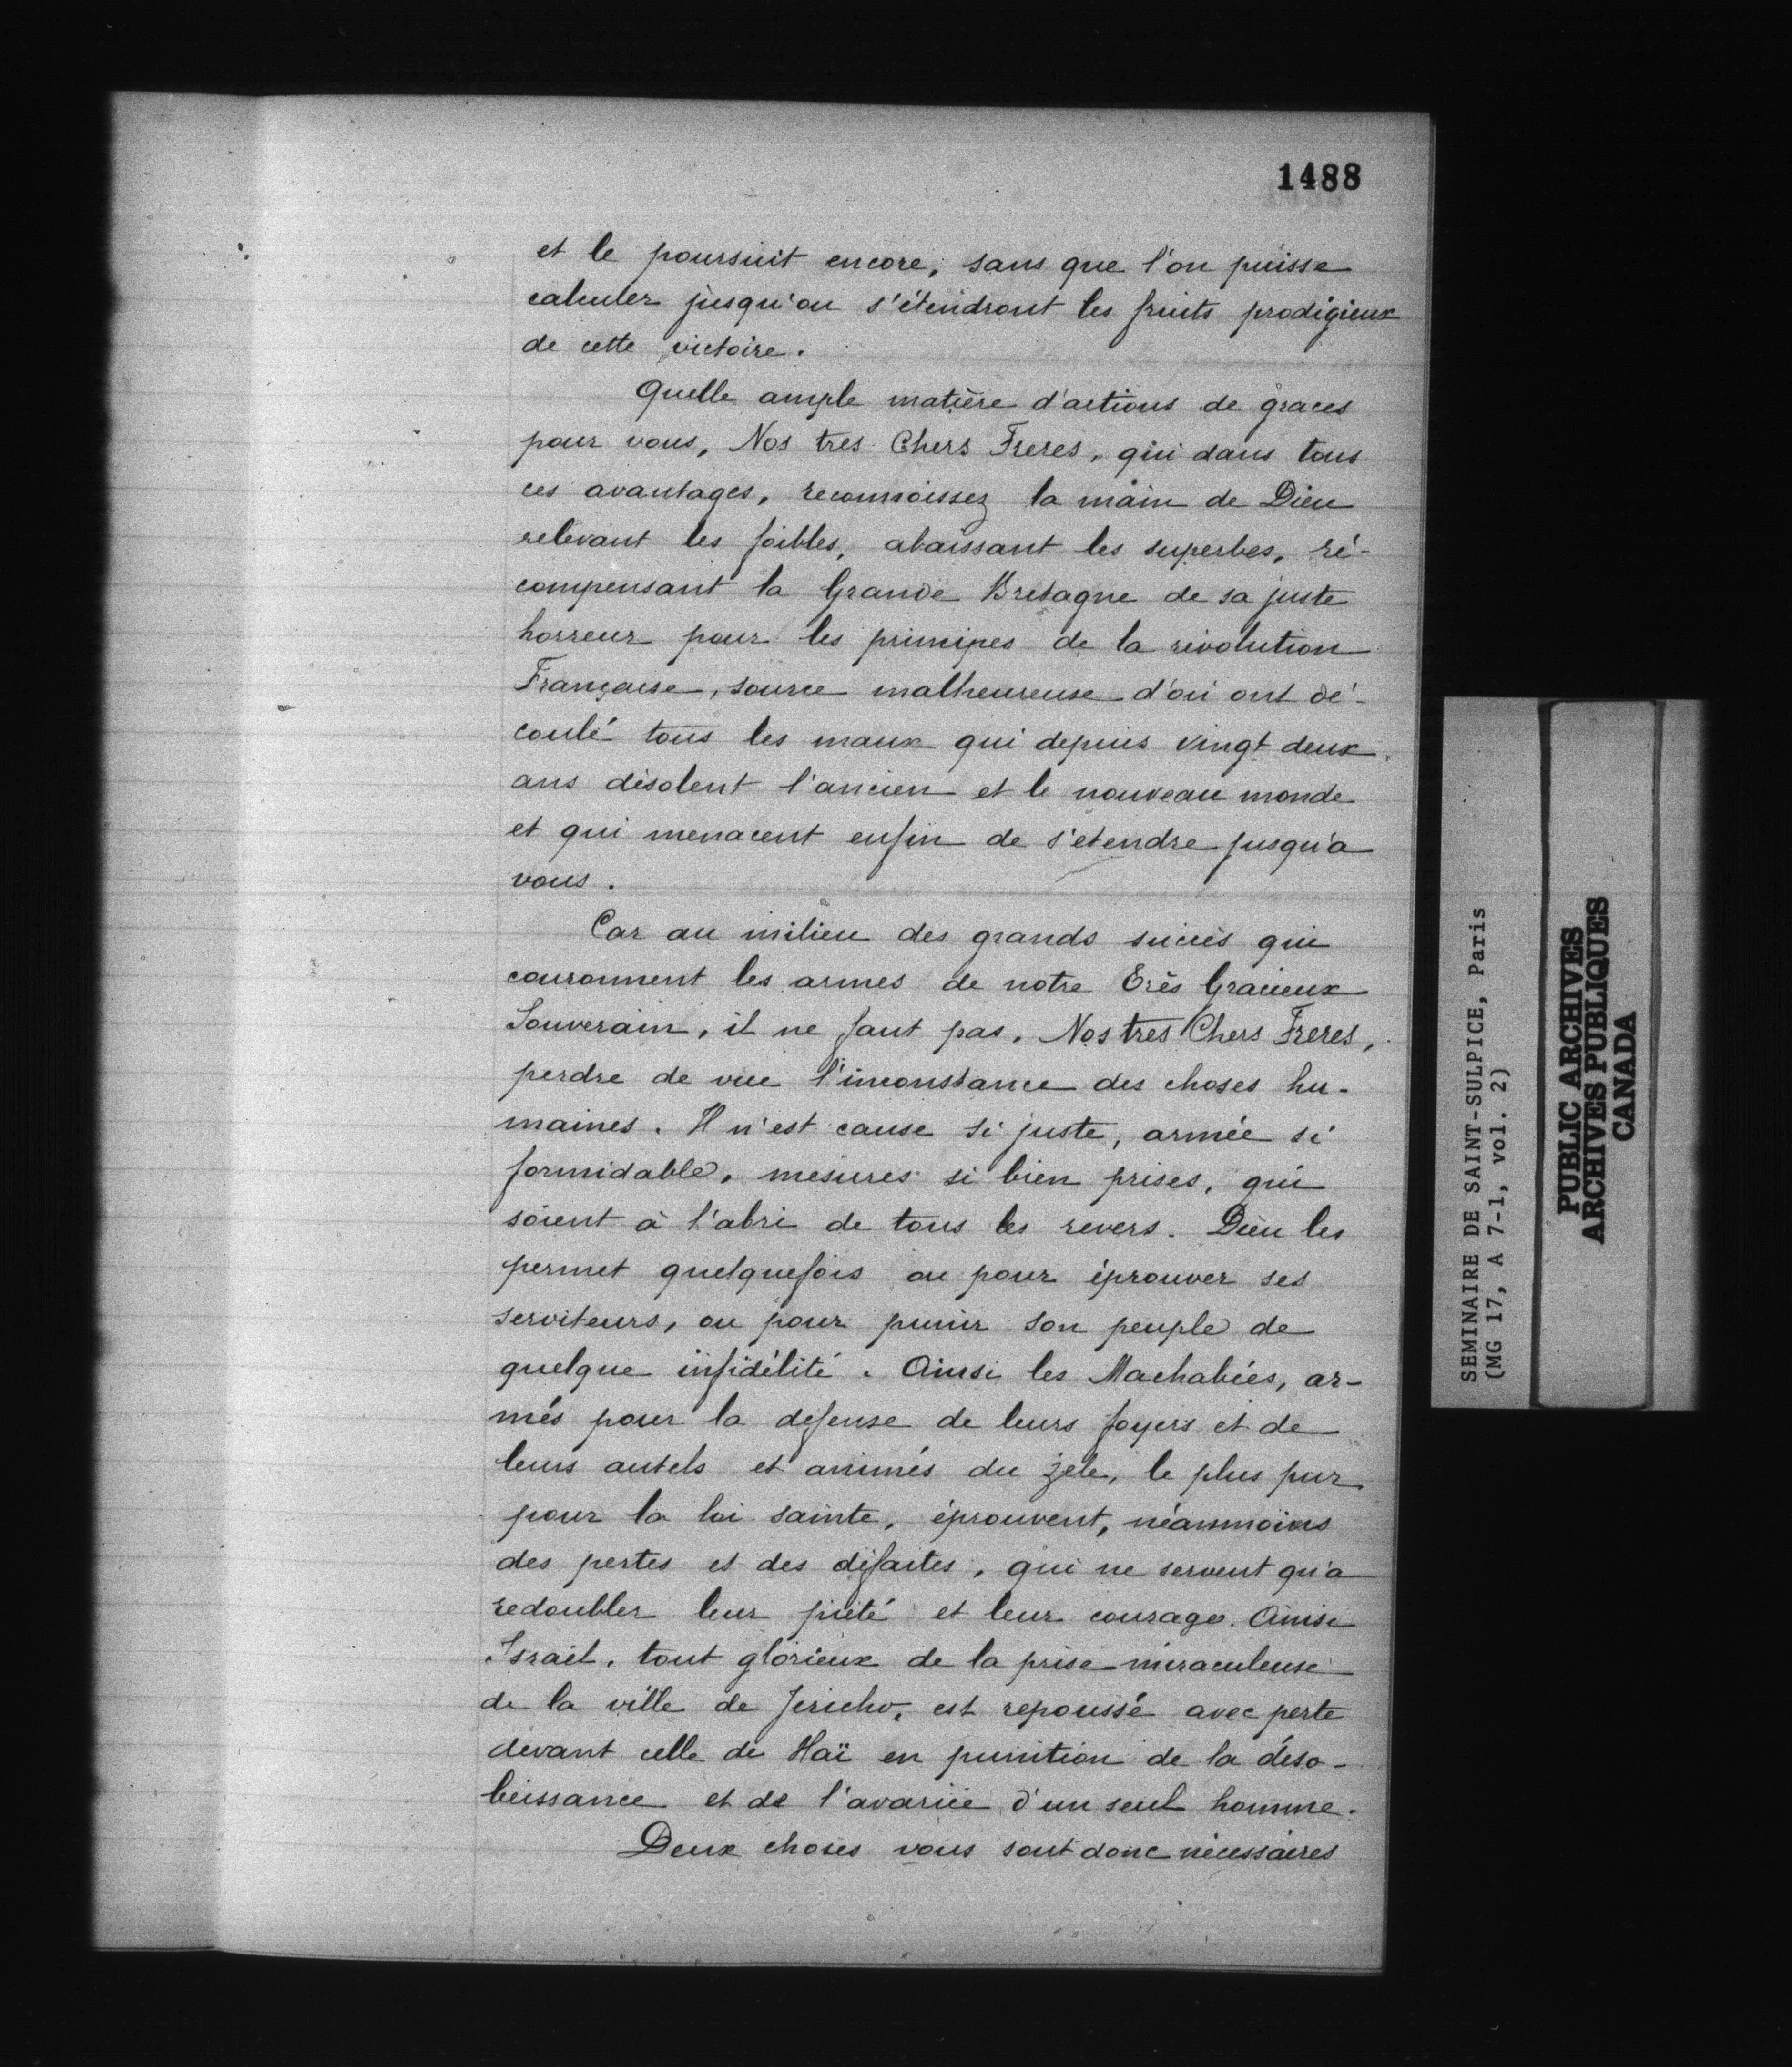 1488
et le poursuit encore, sans que l'on puisse
calculer jusqu'ou s'étendront les fruits prodigieux
de cette victoire.
Quelle ample matière d'actions de graces
pour vous, Nos tres Chers Freres, qui dans tous
ces avantages, reconnoissez la main de Dieu
relevant les foibles, abaissant les superbes, ré-
compensant la Grande Bretagne de sa juste
horreur pour les principes de la révolution
Française, source malheureuse d'où ont dé-
coulé tous les maux qui depuis vingt deux
ans désolent l'ancien et le nouveau monde
et qui menacent enfin de s'etendre jusqu'a
vous.
Car au milieu des grands succès qui
couronnent les armes de notre Très Gracieux
Souverain, il ne faut pas, Nos tres Chers Freres,
perdre de vue l'inconstance des choses hu-
maines. Il n'est cause si juste, armée si
formidable, mesures si bien prises, qui
soient à l'abri de tous les revers. Dieu les
permet quelquefois ou pour éprouver ses
serviteurs, ou pour punir son peuple de
quelque infidélité. Ainsi les Machabées, ar-
més pour la defense de leurs foyers et de
leurs autels et animés du zele, le plus pur
pour la loi sainte, éprouvent, néanmoins
des pertes et des défaites, qui ne servent qu'a
redoubler leur piété et leur courage. Ainsi
Israël, tout glorieux de la prise miraculeuse
de la ville de Jericho, est repoussé avec perte
devant celle de Haï en punition de la déso-
beissance et de l'avarice d'un seul homme.
Deux choses vous sont donc nécessaires
SEMINAIRE DE SAINT-SULPICE, Paris
(MG 17, A 7-1, vol. 2)
PUBLIC ARCHIVES
ARCHIVES PUBLIQUES
CANADA